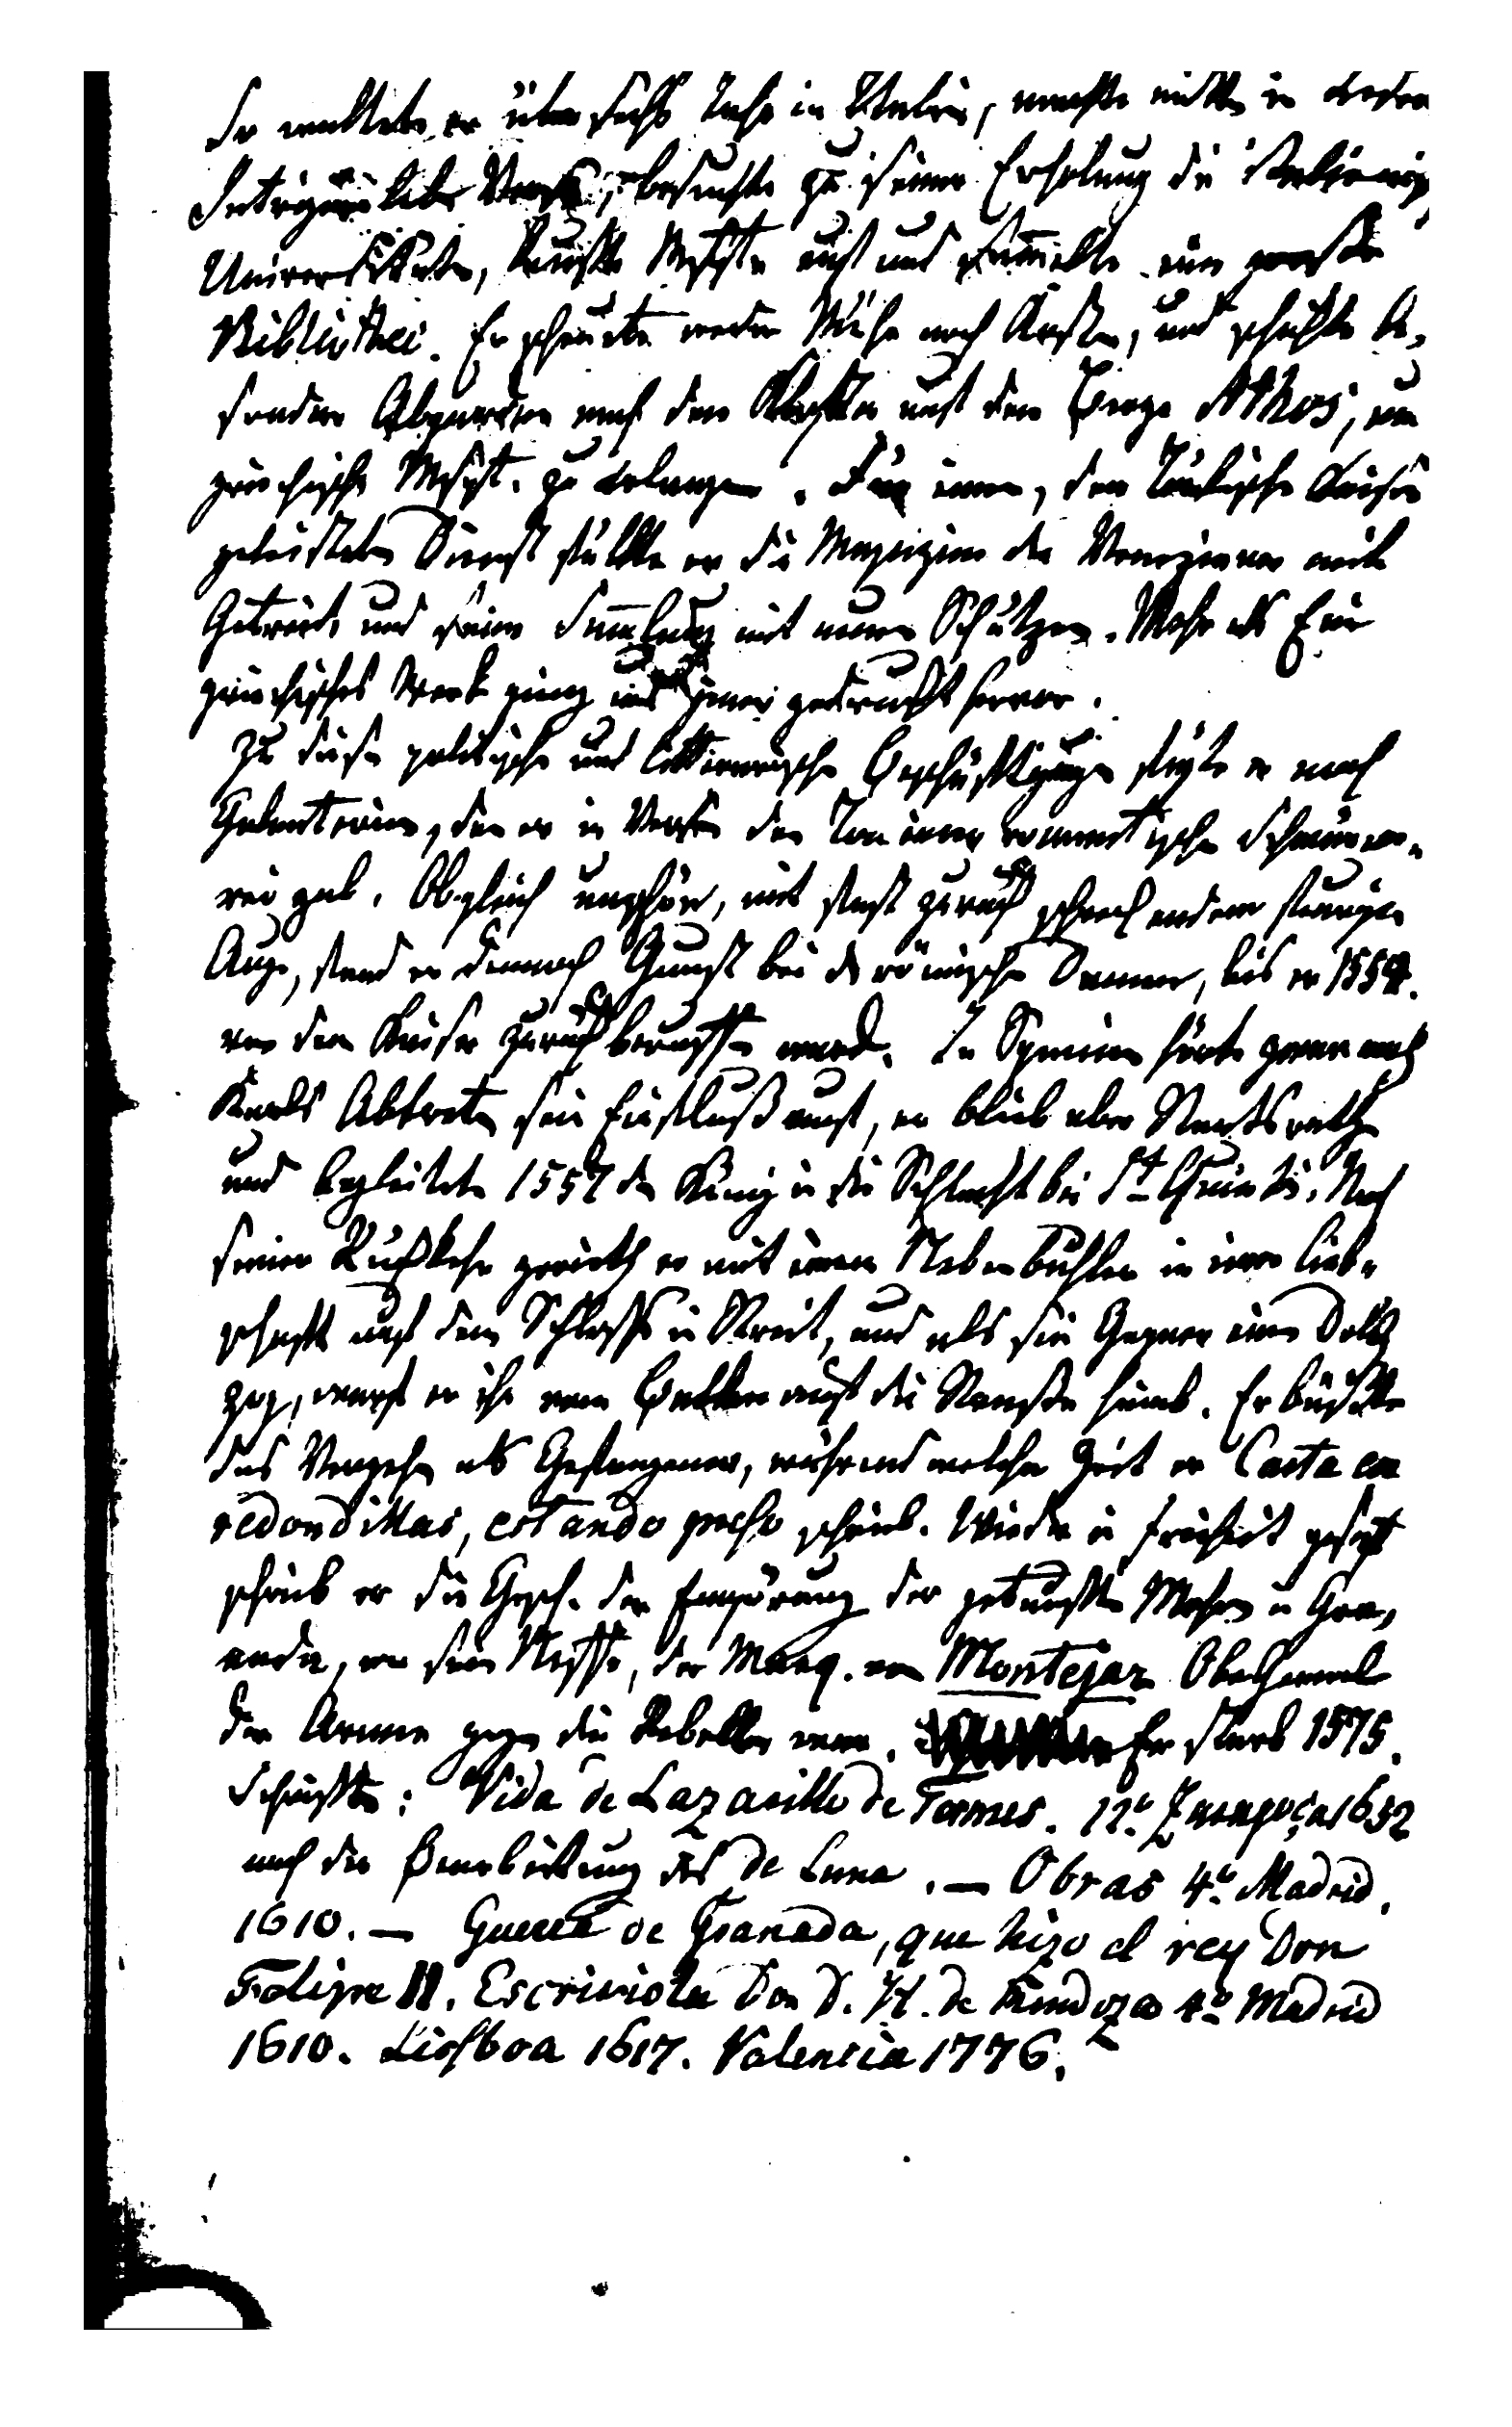 So waltete er über sechs Jahr in Italien, machte mitten in
Intriguen Verse, besuchte zu seiner Erholung die Italienisch
Universitäten, kaufte Mscpte auf und sammelte eine große
Bibliothec. Er scheute weder Mühe noch Kosten, und schickte be-
sondere Abgesandte nach den Klöstern auf dem Berge Athos, um
griechische Mscpt. zu erlangen. Für einen, dem Türkischen Kaiser
geleisteten Dienst füllte er die Magazine der Venezianer mit
Getreide und seine Sammlung mit neuen Schätzen. Mehr als Ein
griechisches Werk ging aus jener gedruckt hervor.
Zu diesen politischen und litterarischen Beschäftigungen fügte er noch
Galanterien, denen er in Versen den Ton einer romantischen Schwärme-
rei gab. Obgleich unschön, mit fast zurück schreckendem feurigen
Auge, stand er dennoch Gunst bei den römischen Damen, bis er 1554.
von dem Kaiser zurück beruffen ward. In Spanien hörte zwar nach
Karls Abtreten sein Einfluß auf, er blieb aber Staatsrath
und begleitete 1557 den König in die Schlacht bei St Quintin. Nach
seiner Rückkehr gerieth er mit einem Nebenbuhler in einer Lieb-
schaft auf dem Schlosse in Streit, und als sein Gegner einen Dolch
zog, warf er ihn vom Balkon auf die Straße hinab. Er büßte
das Vergehen als Gefangener, während welcher Zeit er Carta en
redondillas, estando preso schrieb. Wieder in Freiheit gesetzt
schrieb er die Gesch. der Empörung der getauften Mohren in Gra-
nada, wo sein Neffe, der Marq. von Montejar Obergeneral
der Armee gegen die Rebellen war. Er starb 1575.
Schriften: Vida de Lazarillo de Tormes. 12º. Zaragoça 1652
nach der Bearbeitung des de Luna. — Obras 4º. Madrid.
1610. — Guerra de Granada, que hizo el rey Don
Felipe II. Escriviola Don D. H. de Mendoza 4º Madrid
1610. Lisboa 1617. Valencia 1776.